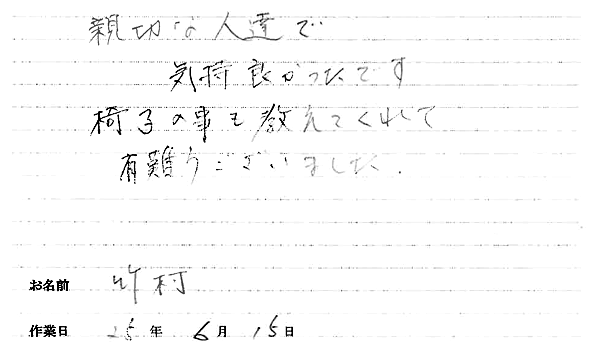 親切な人達で
気持良かったです
椅子の事も教えてくれて
有難うございました.
お名前 竹村
作業日 25年 6月 15日